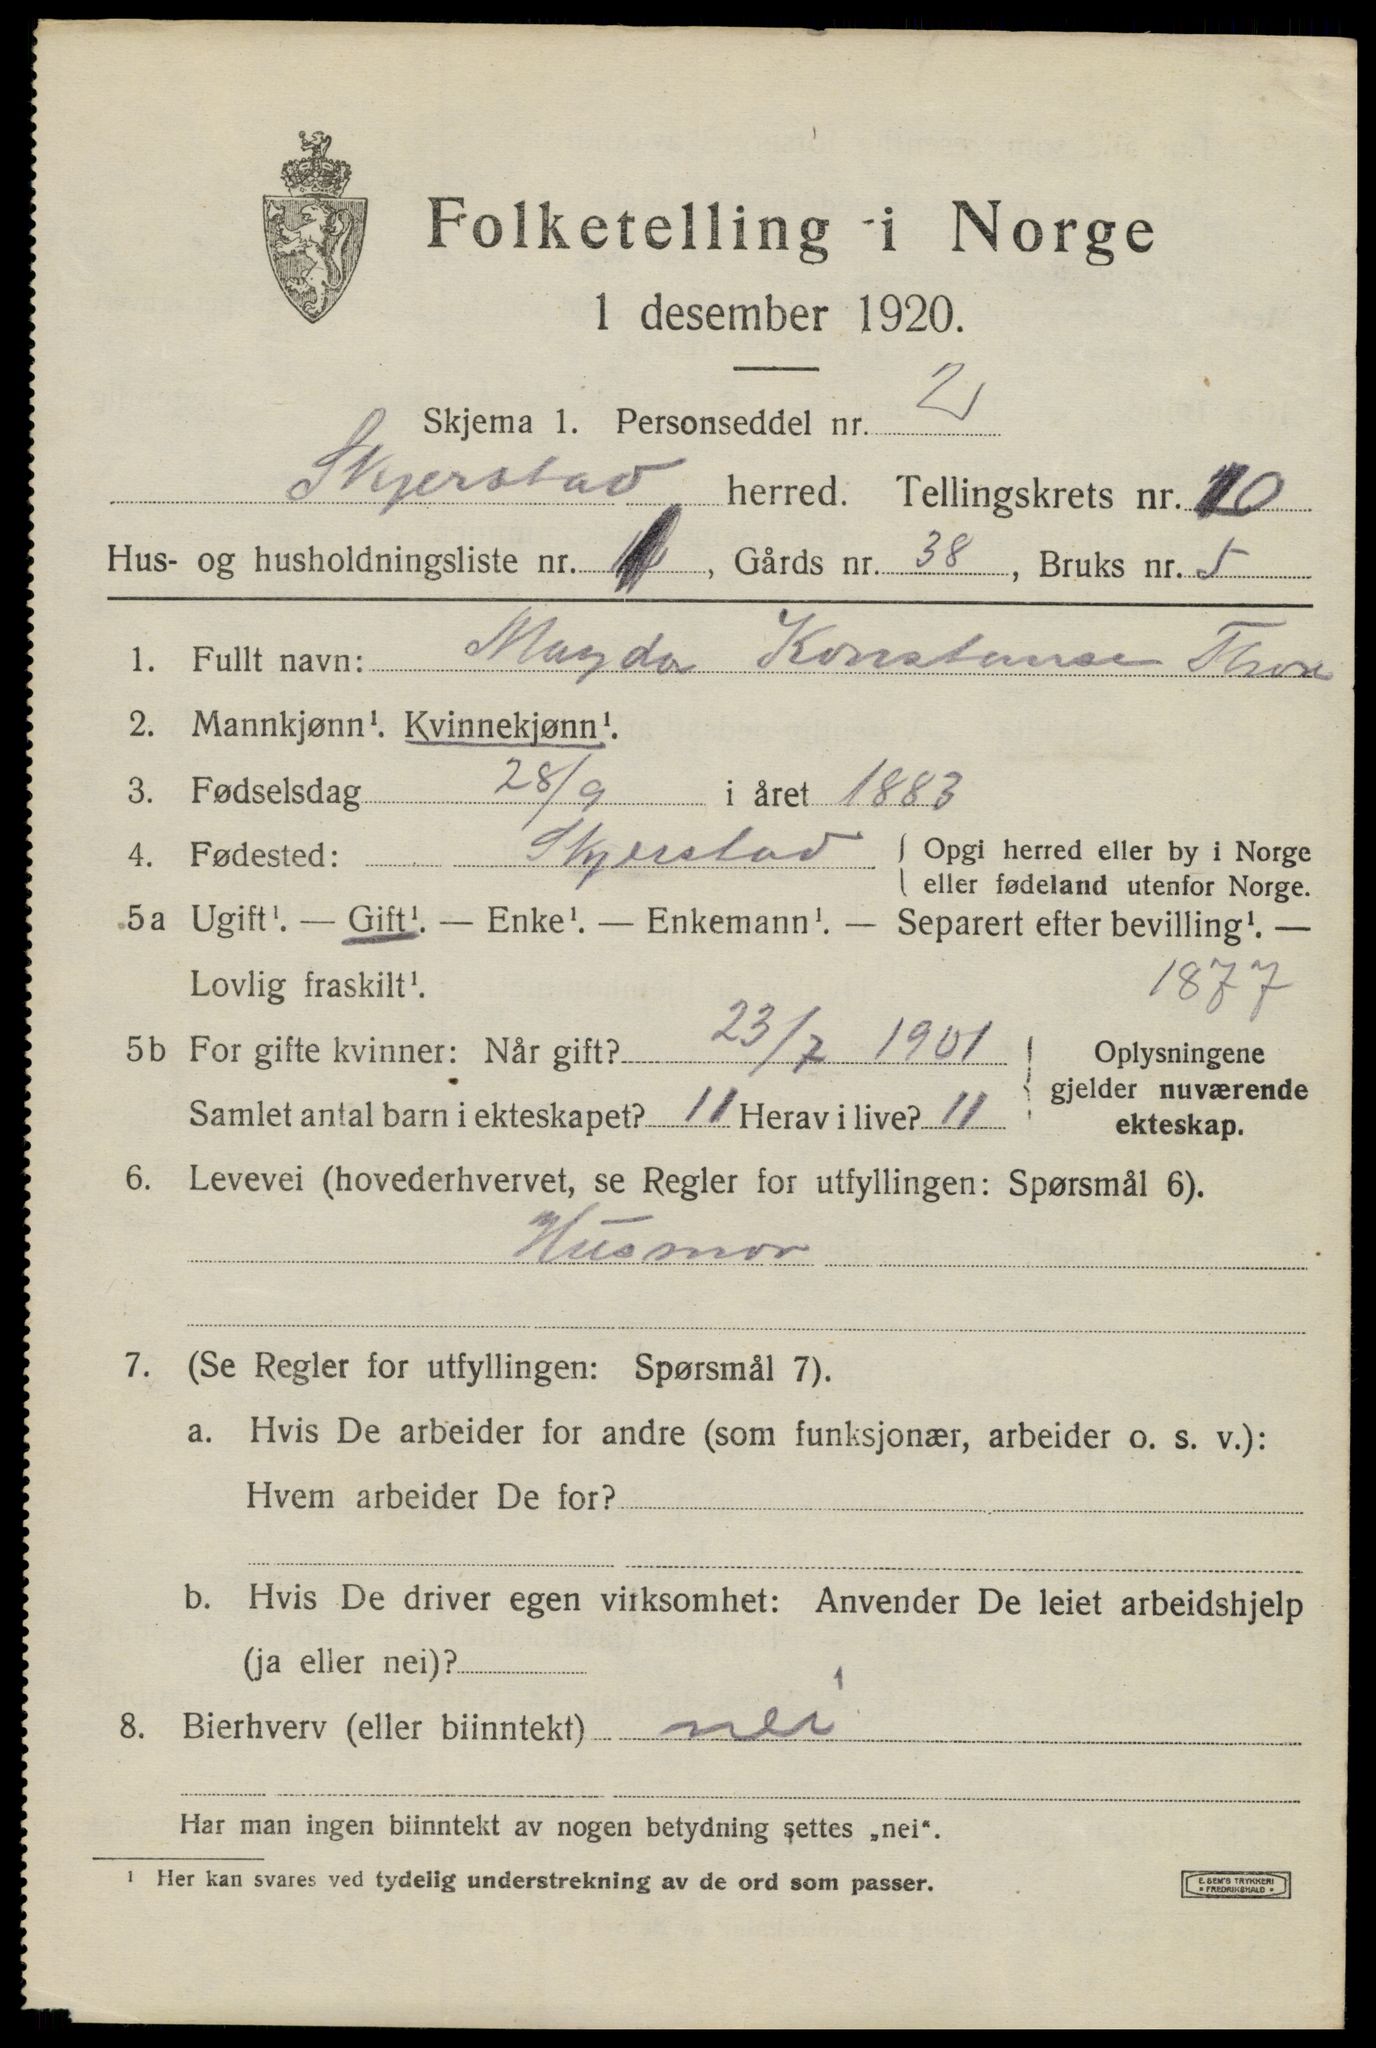 Folketelling i Norge
1 desember 1920.
Skjema 1. Personseddel nr. 2
Skjerstad herred. Tellingskrets nr. 10
Hus- og husholdningsliste nr. , Gårds nr. 38, Bruks nr. 5
1. Fullt navn: Magda Konstanse
2. Mannkjønn¹. Kvinnekjønn¹.
3. Fødselsdag 28/9 i året 1883
4. Fødested: Skjerstad { Opgi herred eller by i Norge
eller fødeland utenfor Norge.
5a Ugift¹. — Gift¹. — Enke¹. — Enkemann¹. — Separert efter bevilling¹. —
Lovlig fraskilt¹.
1877
5b For gifte kvinner: Når gift? 23/7 1901
Samlet antal barn i ekteskapet? 11 Herav i live? 11
Oplysningene
gjelder nuværende
ekteskap.
6. Levevei (hovederhvervet, se Regler for utfyllingen: Spørsmål 6).
Husmor
7. (Se Regler for utfyllingen: Spørsmål 7).
a. Hvis De arbeider for andre (som funksjonær, arbeider o. s. v.):
Hvem arbeider De for?
b. Hvis De driver egen virksomhet: Anvender De leiet arbeidshjelp
(ja eller nei)?
8. Bierhverv (eller biinntekt) nei
Har man ingen biinntekt av nogen betydning settes „nei“.
¹ Her kan svares ved tydelig understrekning av de ord som passer.
E. SEM'S TRYKKERI
FREDRIKSHALD